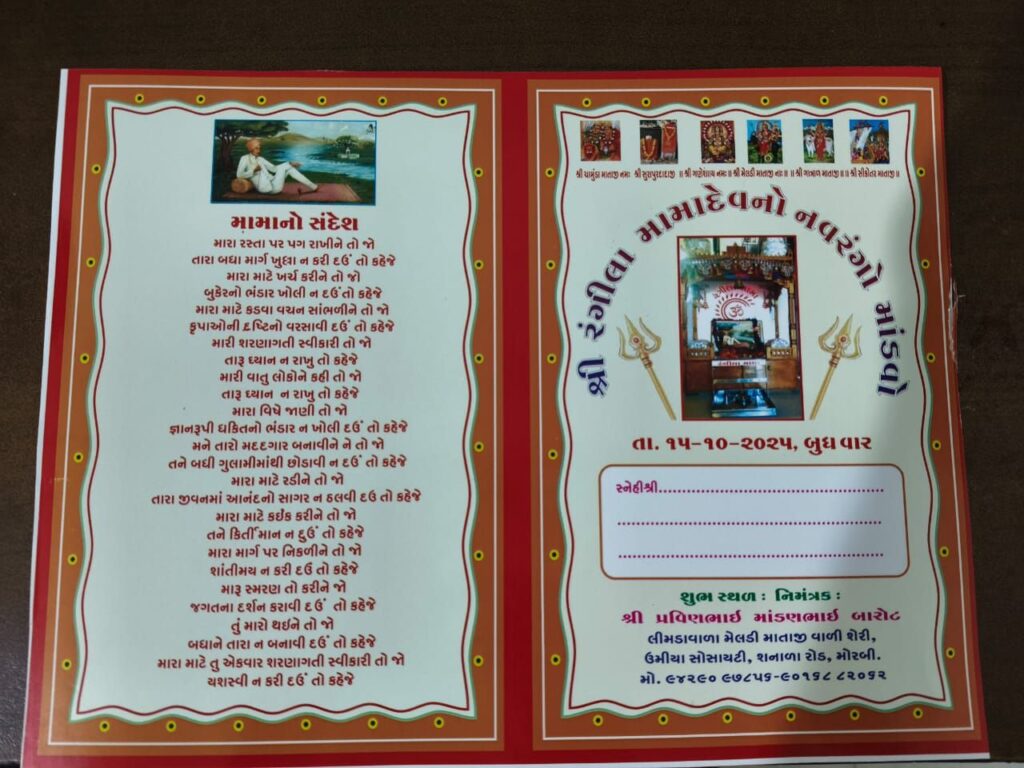 મામાનો સંદેશ
મારા રસ્તા પર પગ રાખીને તો જો
તારા બધા માર્ગ ખુલ્લા ન કરી દઉં તો કહેજે
મારા માટે ખર્ચ કરીને તો જો
બુકેરનો ભંડાર ખોલી ન દઉં તો કહેજે
મારા માટે કડવા વચન સાંભળીને તો જો
કૃપાઓની દ્રષ્ટિનો વરસાવી દઉં તો કહેજે
મારી શરણાગતી સ્વીકારી તો જો
તારૂ ધ્યાન ન રાખુ તો કહેજે
મારી વાતુ લોકોને કહી તો જો
તારૂ ધ્યાન ન રાખુ તો કહેજે
મારા વિષે જાણી તો જો
જ્ઞાનરૂપી ધકિતનો ભંડાર ન ખોલી દઉં તો કહેજે
મને તારો મદદગાર બનાવીને ને તો જો
તને બધી ગુલામીમાંથી છોડાવી ન દઉં તો કહેજે
મારા માટે રડીને તો જો
તારા જીવનમાં આનંદનો સાગર ન ઠલવી દઉ તો કહેજે
મારા માટે કઇક કરીને તો જો
તને કિર્તીમાન ન દુઉં તો કહેજે
મારા માર્ગ પર નિકળીને તો જો
શાંતીમય ન કરી દઉં તો કહેજે
મારૂ સ્મરણ તો કરીને જો
જગતના દર્શન કરાવી દઉં તો કહેજે
તું મારો થઇને તો જો
બધાને તારા ન બનાવી દઉં તો કહેજે
મારા માટે તુ એકવાર શરણાગતી સ્વીકારી તો જો
યશસ્વી ન કરી દઉં તો કહેજે
શ્રી ચામુંડા માતાજી નમઃ શ્રી સુરાપુરદાદાજી ॥ શ્રી ગણેશાય નમઃ ॥ શ્રી મેલડી માતાજી નમઃ ॥ ॥ શ્રી ગાત્રાળ માતાજી ॥ ॥ શ્રી સીકોતર માતાજી ॥
શ્રી રંગીલા મામાદેવનો નવરંગો માંડવો
ૐ
રંગીલા મામા
તા. ૧૫-૧૦-૨૦૨૫, બુધવાર
સ્નેહીશ્રી
શુભ સ્થળ : નિમંત્રક :
શ્રી પ્રવિણભાઈ માંડણભાઈ બારોટ
લીમડાવાળા મેલડી માતાજી વાળી શેરી,
ઉમીયા સોસાયટી, શનાળા રોડ, મોરબી.
મો. ૯૪૨૯૦ ૯૭૮૫૬-૯૦૧૬૮ ૮૨૦૬૨